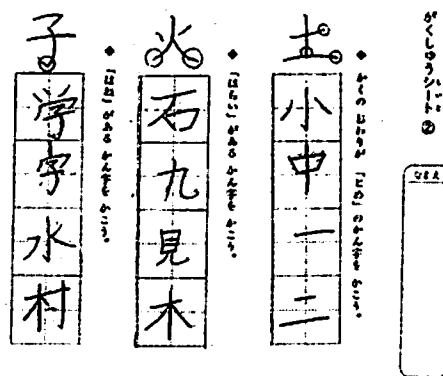 がくしゅうシート②
なまえ
◆かくの おわりが 「とめ」の かん字を かこう。
土
小中一二
◆「はらい」が ある かん字を かこう。
火
石九見木
◆「はね」が ある かん字を かこう。
子
学字水村